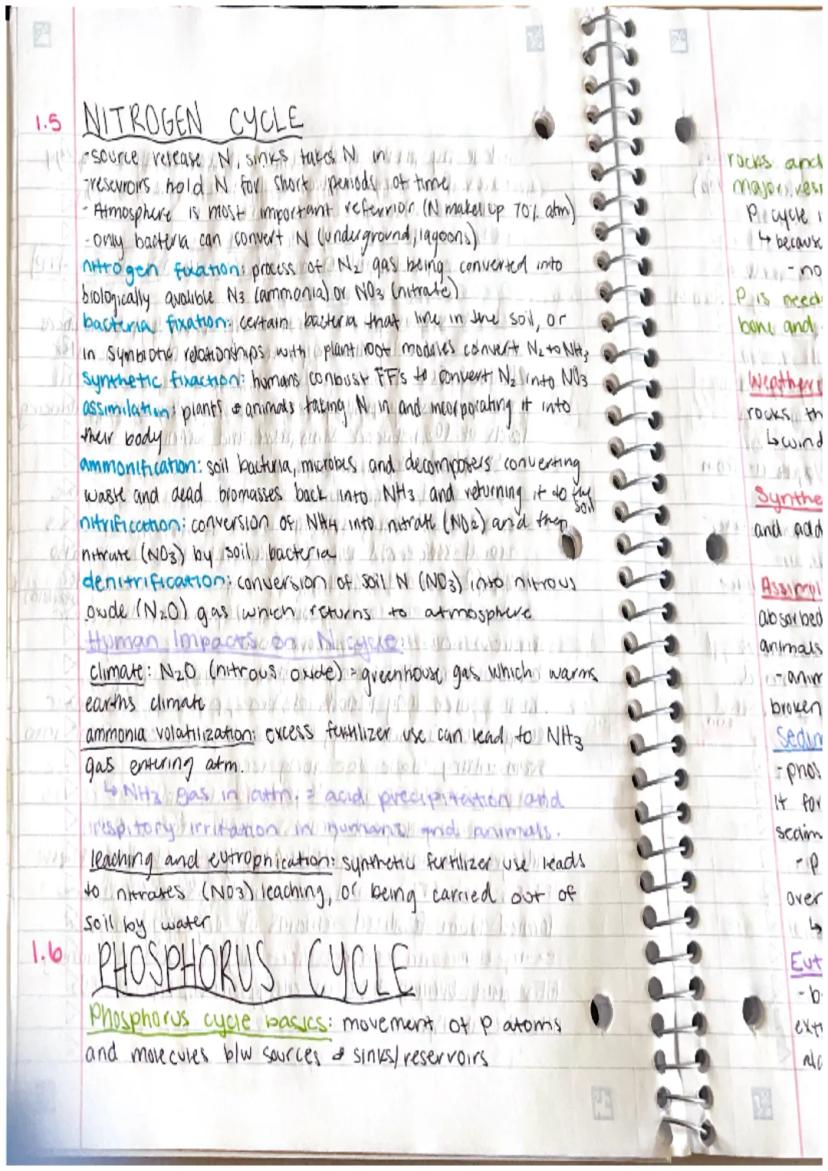 1.5 NITROGEN CYCLE
-source release N, sinks takes N in
-reservoirs hold N for short periods of time
- Atmosphere is most important referrior (N makes up 70% atm)
- only bacteria can convert N (underground, lagoons)
nitrogen fixation: process of N2 gas being converted into
biologically avalible N3 (ammonia) or NO3 (nitrate)
bacteria fixation: certain bacteria that live in the soil, or
in symbiotic relationships with plant root modules convert N2 to NH3
synthetic fixaction: humans conbust FF's to convert N2 into NO3
assimilation: plants & animals taking N in and incorporating it into
their body
ammonification: soil bacteria, microbes and decomposers converting
waste and dead biomasses back into NH3 and returning it to the
soil
nitrification: conversion of NH4 into nitrate (NO2) and then
nitrate (NO3) by soil bacteria
denitrification: conversion of soil N (NO3) into nitrous
oxide (N2O) gas which returns to atmosphere
Human Impacts on N cycle:
climate: N2O (nitrous oxide) = greenhouse gas which warms
earths climate
ammonia volatilization: excess fertilizer use can lead to NH3
gas entering atm.
↳ NH3 gas in atm. = acid precipitation and
respitory irritation in humans and animals.
leaching and eutrophication: synthetic fertilizer use leads
to nitrates (NO3) leaching, or being carried out of
soil by water
1.6 PHOSPHORUS CYCLE
Phosphorus cycle basics: movement of P atoms
and molecules b/w sources & sinks/reservoirs
rocks and
major
P cycle
↳ because
- no
P is need
bone and
rocks th
↳ wind
Synthe
and add
Assimi
absorbed
animals
- anim
broken
Sedim
- phos
it for
sedim
- P
over
↳
Eut
- b
ext